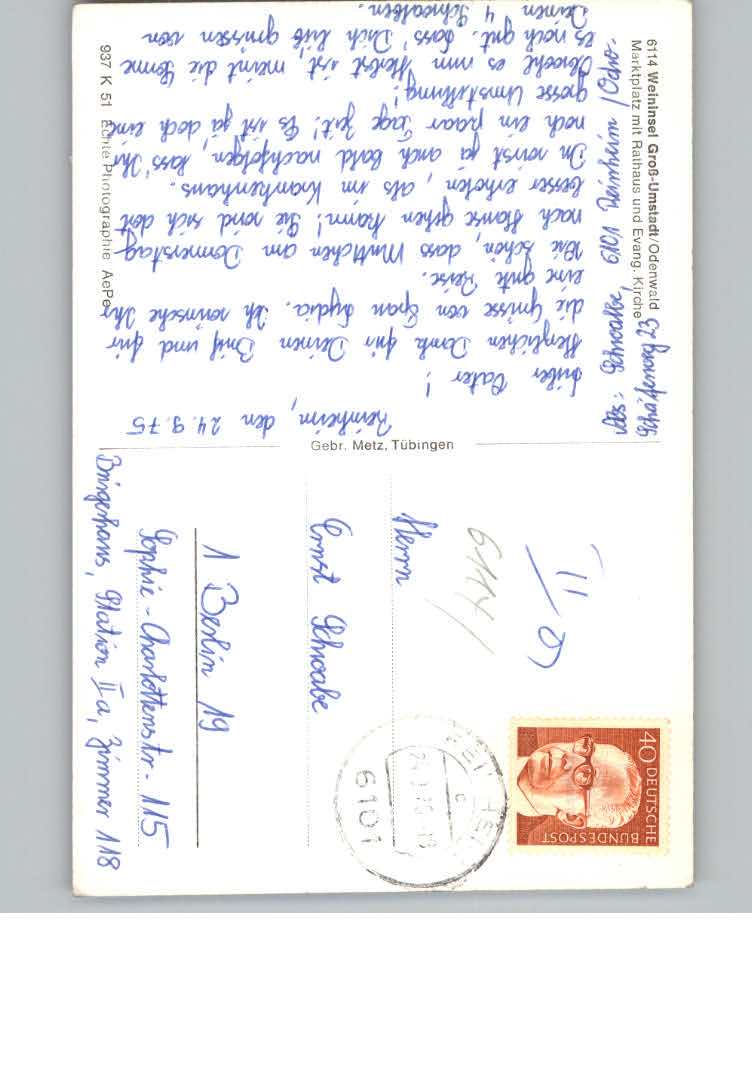 6114 Weininsel Groß-Umstadt/Odenwald
Marktplatz mit Rathaus und Evang. Kirche
Abs: Schwalbe, 6101 Reinheim/Odw.
23
Reinheim, den 24.9.75
Lieber Vater!
Herzlichen Dank für Deinen Brief und für
die Grüsse von Frau Lydia. Ich wünsche Ihr
eine gute Reise.
Wie schön, dass Muttchen am Donnerstag
nach Hause gehen kann! Sie wird sich dort
besser erholen, als im Krankenhaus.
Du wirst ja auch bald nachfolgen, lass' Ihr
noch ein paar Tage Zeit! Es ist ja doch eine
grosse Umstellung!
Obwohl es nun Herbst ist, meint die Sonne
es noch gut. Lass' Dich lieb grüssen von
Deinen 4 Schwalben.
937 K 51 Echte Photographie AePe
Gebr. Metz, Tübingen
II/
6114/
40 DEUTSCHE
BUNDESPOST
6101
Herrn
Ernst Schwalbe
1 Berlin 19
Sophie-Charlottenstr. 115
Bürgerhaus, Station IIa, Zimmer 118